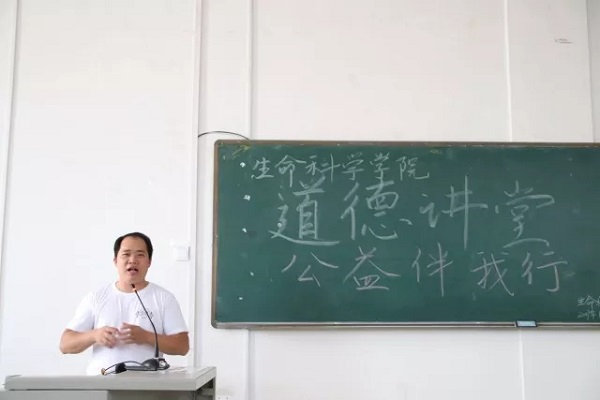 生命科学学院
道德讲堂
公益伴我行
生命